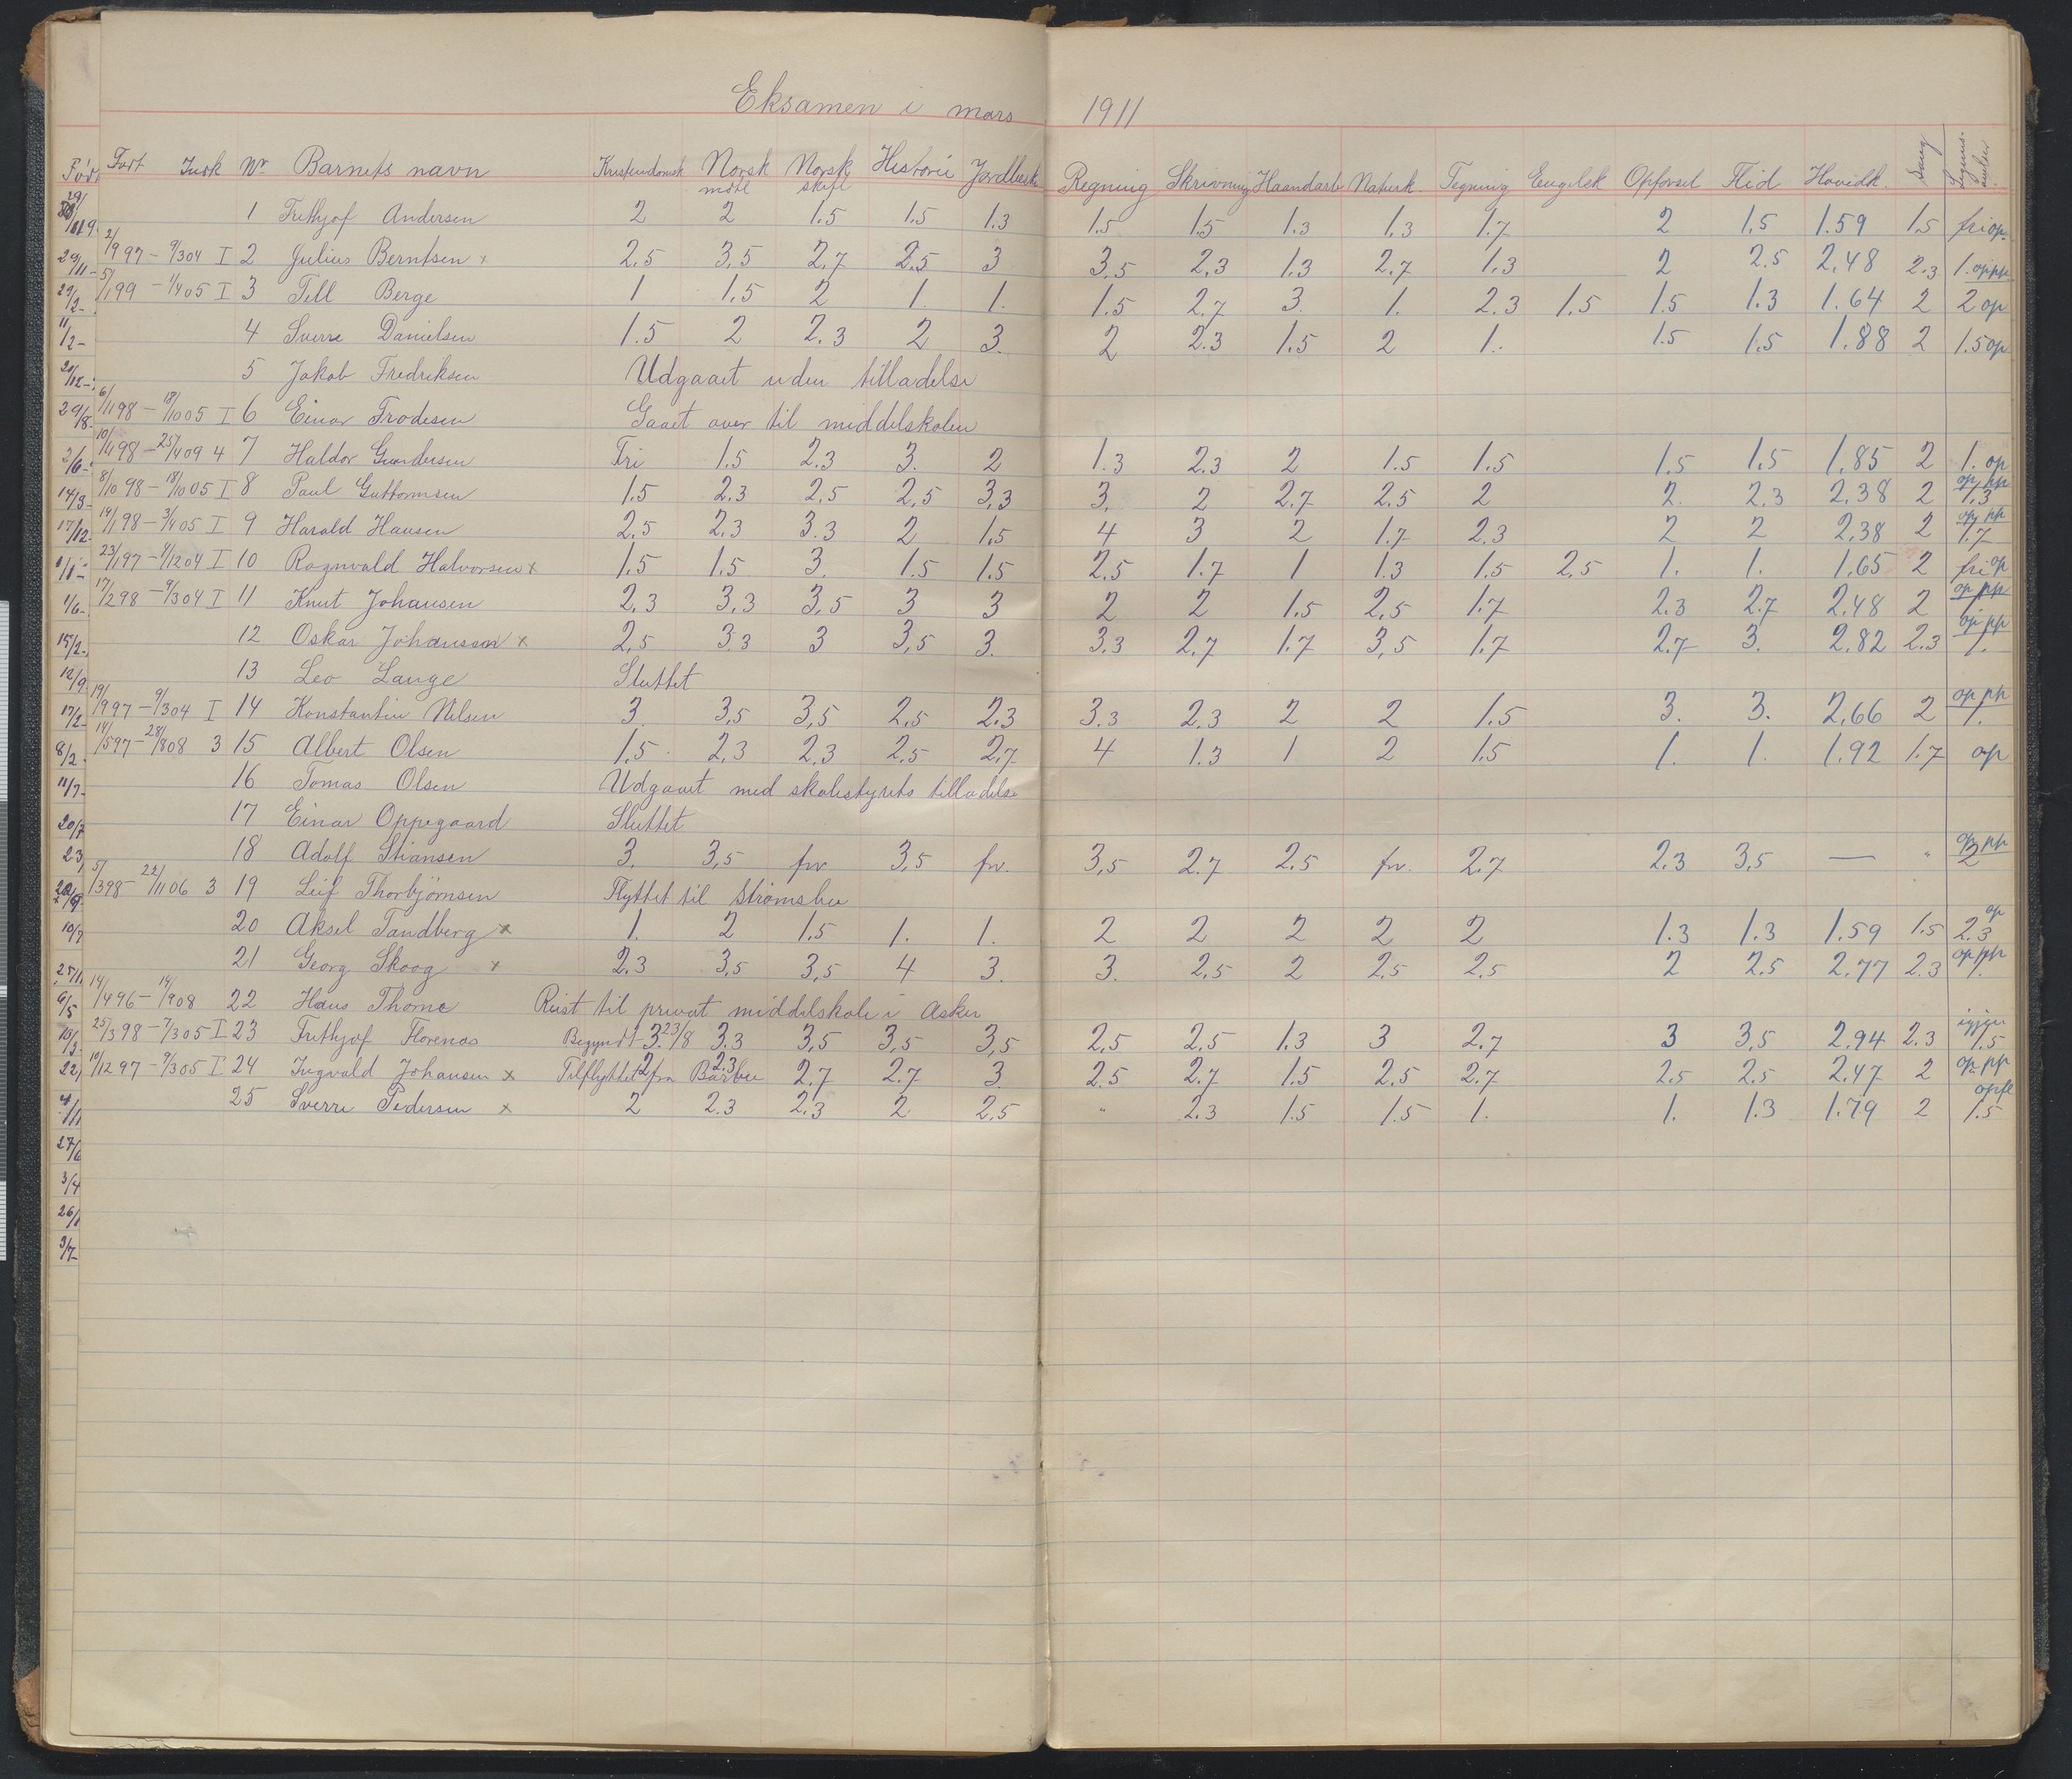 Eksamen i mars 1911
Født Født Indk Nr. Barnets navn Kristendomsk Norsk mdtl Norsk skftl Historie Jordbesk Regning Skrivning Haandarb Naturk. Tegning Engelsk Opførsel Flid Hovedk. Sang
1 Frithjof Andersen 2 2 1.5 1.5 1.3 1.5 1.5 1.3 1.3 1.7 2 1.5 1.59 1.5 fri op.
29/11- 2/9 97 - 9/3 04 I 2 Julius Berntsen x 2.5 3.5 2.7 2.5 3 3.5 2.3 1.3 2.7 1.3 2 2.5 2.48 2.3 1. oppr
29/2- 5/1 99 - 1/4 05 I 3 Tell Berge 1 1.5 2 1. 1. 1.5 2.7 3. 1. 2.3 1.5 1.5 1.3 1.64 2 2 op
11/2- 4 Sverre Danielsen 1.5 2 2.3 2 3. 2 2.3 1.5 2 1. 1.5 1.5 1.88 2 1.5 op
5 Jakob Fredriksen Udgaaet uden tilladelse
29/8- 6/11 98 - 18/10 05 I 6 Einar Frodesen Gaaet over til middelskolen
2/6- 10/4 98 - 25/4 09 4 7 Haldor Gundersen Fri 1.5 2.3 3. 2 1.3 2.3 2 1.5 1.5 1.5 1.5 1.85 2 1. op
14/3- 8/10 98 - 18/10 05 I 8 Paul Guttormsen 1.5 2.3 2.5 2.5 3.3 3. 2 2.7 2.5 2 2. 2.3 2.38 2 op pp 1.3
17/12 14/1 98 - 3/4 05 I 9 Harald Hansen 2.5 2.3 3.3 2 1.5 4 3 2 1.7 2.3 2 2 2.38 2 op pp 1.7
23/1 97 - 4/12 04 I 10 Ragnvald Halvorsen x 1.5 1.5 3. 1.5 1.5 2.5 1.7 1 1.3 1.5 2.5 1. 1. 1.65 2 fri op
1/6- 17/2 98 - 9/3 04 I 11 Knut Johansen 2.3 3.3 3.5 3 3 2 2 1.5 2.5 1.7 2.3 2.7 2.48 2 op pp
15/2- 12 Oskar Johansson x 2.5 3.3 3 3.5 3. 3.3 2.7 1.7 3.5 1.7 2.7 3. 2.82 2.3 op pp 1.
12/9 13 Leo Lange Sluttet
17/2- 19/9 97 - 9/3 04 I 14 Konstantin Nilsen 3. 3.5 3.5 2.5 2.3 3.3 2.3 2 2 1.5 3. 3. 2.66 2 op pp 1.
8/2- 14/5 97 - 28/8 08 3 15 Albert Olsen 1.5 2.3 2.3 2.5 2.7 4 1.3 1 2 1.5 1. 1. 1.92 1.7 op
11/7- 16 Tomas Olsen Udgaaet med skolestyrets tilladelse
20/7 17 Einar Oppegaard Sluttet
23/ 18 Adolf Stiansen 3. 3.5 frv 3.5 frv. 3.5 2.7 2.5 frv. 2.7 2.3 3.5 — " op pp 2
5/3 98 22/11 06 3 19 Leif Thorbjörnsen Flyttet til Strømsbu
10/7 20 Aksel Tandberg x 1. 2 1.5 1. 1. 2 2 2 2 2 1.3 1.3 1.59 1.5 op 2.3
25/11 21 Georg Skoog x 2.3 3.5 3.5 4 3. 3. 2.5 2 2.5 2.5 2 2.5 2.77 2.3 op pp 1.
9/5 14/4 96 - 14/9 08 22 Hans Thorne Reist til privat middelskole i Asker
10/3 25/3 98 - 7/3 05 I 23 Frithjof Florenas Begyndt 23/8 3. 3.3 3.5 3.5 3.5 2.5 2.5 1.3 3 2.7 3 3.5 2.94 2.3 1.5
22/ 10/12 97 - 9/3 05 I 24 Ingvald Johansen x Tilflyttet fra Barbu 2 2.3 2.7 2.7 3. 2.5 2.7 1.5 2.5 2.7 2.5 2.5 2.47 2 op pp
25 Sverre Pedersen x 2 2.3 2.3 2 2.5 " 2.3 1.5 1.5 1. 1. 1.3 1.79 2 1.5
27/6
3/4
26/1
3/7-